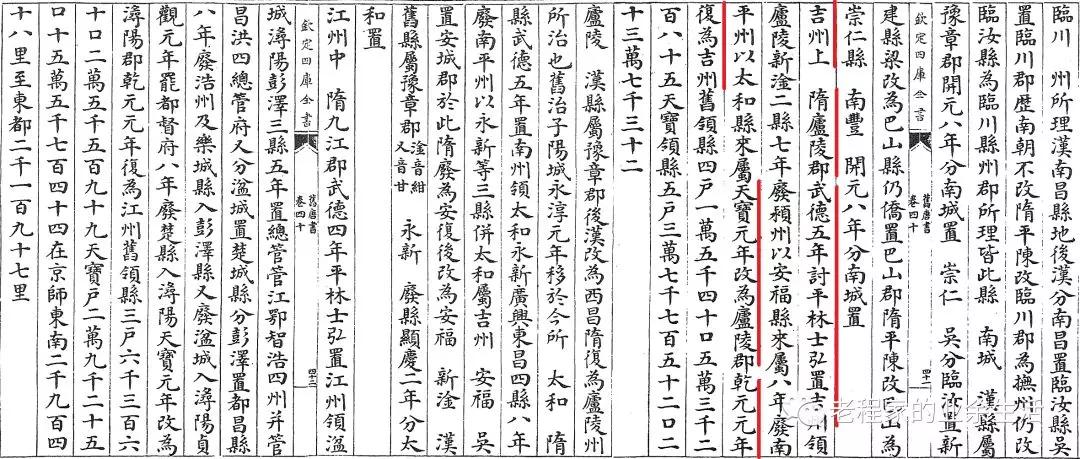 臨川　州所理漢南昌縣地後漢分南昌置臨汝縣吳
置臨川郡歷南朝不改隋平陳改臨川郡為撫州仍改
臨汝縣為臨川縣州郡所理皆此縣　南城　漢縣屬
豫章郡開元八年分南城置　崇仁　吳分臨汝置新
建縣梁改為巴山縣仍僑置巴山郡隋平陳改巴山為
欽定四庫全書
舊唐書
卷四十
四十一
崇仁縣　南豐　開元八年分南城置
吉州上　隋廬陵郡武德五年討平林士弘置吉州領
廬陵新淦二縣七年廢潁州以安福縣來屬八年廢南
平州以太和縣來屬天寶元年改為廬陵郡乾元元年
復為吉州舊領縣四戶一萬五千四十口五萬三千二
百八十五天寶領縣五戶三萬七千七百五十二口二
十三萬七千三十二
廬陵　漢縣屬豫章郡後漢改為西昌隋復為廬陵州
所治也舊治子陽城永淳元年移於今所　太和　隋
縣武德五年置南州領太和永新廣興東昌四縣八年
廢南平州以永新等三縣併太和屬吉州　安福　吳
置安城郡於此隋廢為安復後改為安福　新淦　漢
舊縣屬豫章郡淦音紺又音甘　永新　廢縣顯慶二年分太
和置
江州中　隋九江郡武德四年平林士弘置江州領湓
欽定四庫全書
舊唐書
卷四十
四十二
城潯陽彭澤三縣五年置總管管江鄂智浩四州并管
昌洪四總管府又分湓城置楚城縣分彭澤置都昌縣
八年廢浩州及樂城縣入彭澤縣又廢湓城入潯陽貞
觀元年罷都督府八年廢楚縣入潯陽天寶元年改為
潯陽郡乾元元年復為江州舊領縣三戶六千三百六
十口二萬五千五百九十九天寶戶二萬九千二十五
口十五萬五千七百四十四在京師東南二千九百四
十八里至東都二千一百九十七里
老程家的业余生活